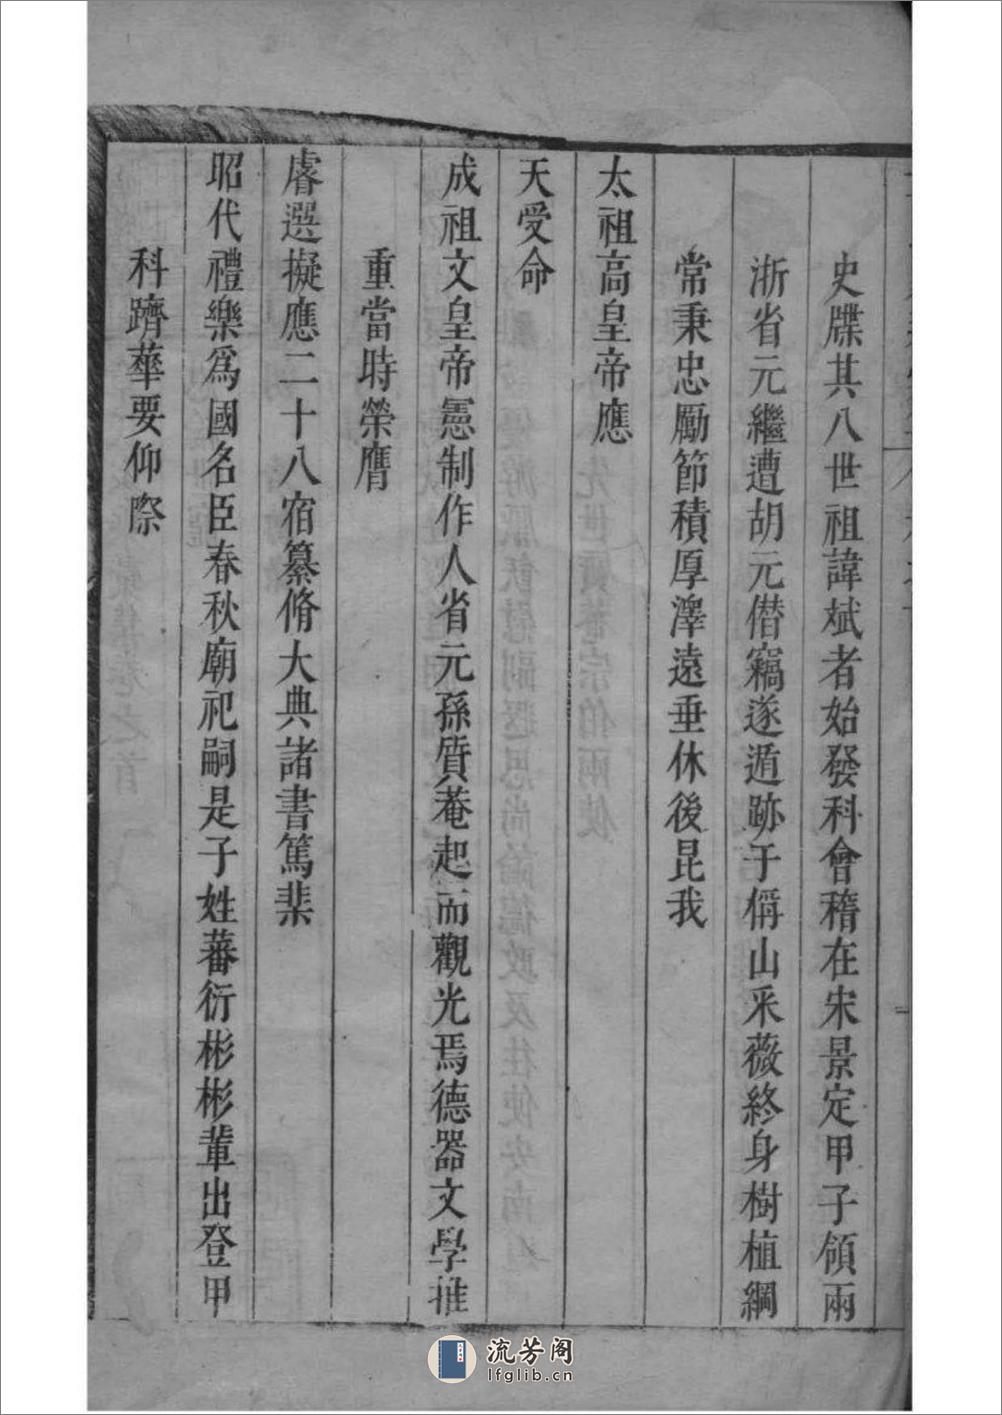 史牒其八世祖諱斌者始發科會稽在宋景定甲子領兩
浙省元繼遭胡元僭竊遂遁跡于倆山采薇終身樹植綱
常秉忠勵節積厚澤遠垂休後昆我
太祖高皇帝應
天受命
成祖文皇帝憲制作人省元孫質菴起而觀光焉德器文學推
重當時榮膺
睿選擬應二十八宿纂脩大典諸書篤棐
昭代禮樂爲國名臣春秋廟祀嗣是子姓蕃衍彬彬輩出登甲
科躋華要仰際
流芳阁
lfglib.cn